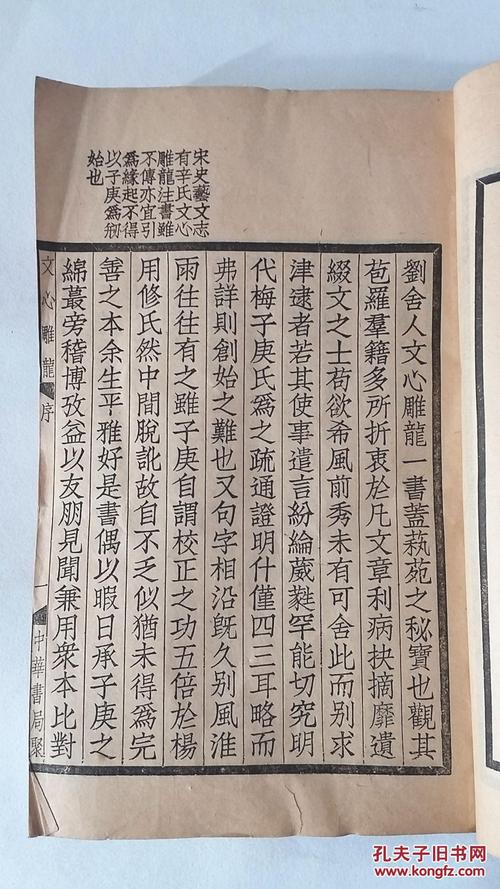 宋史藝文志
有辛氏文心
雕龍注書雖
不傳亦宜引
為緣起不得
以子庚為剏
始也
劉舍人文心雕龍一書蓋蓺苑之秘寶也觀其
苞羅羣籍多所折衷於凡文章利病抉摘靡遺
綴文之士苟欲希風前秀未有可舍此而別求
津逮者若其使事遣言紛綸葳蕤罕能切究明
代梅子庚氏為之疏通證明什僅四三耳略而
弗詳則創始之難也又句字相沿旣久別風淮
雨往往有之雖子庚自謂校正之功五倍於楊
用修氏然中閒脫訛故自不乏似猶未得為完
善之本余生平雅好是書偶以暇日承子庚之
綿蕞旁稽博攷益以友朋見聞兼用衆本比對
文心雕龍 序
一
中華書局聚
孔夫子旧书网
kongfz.com